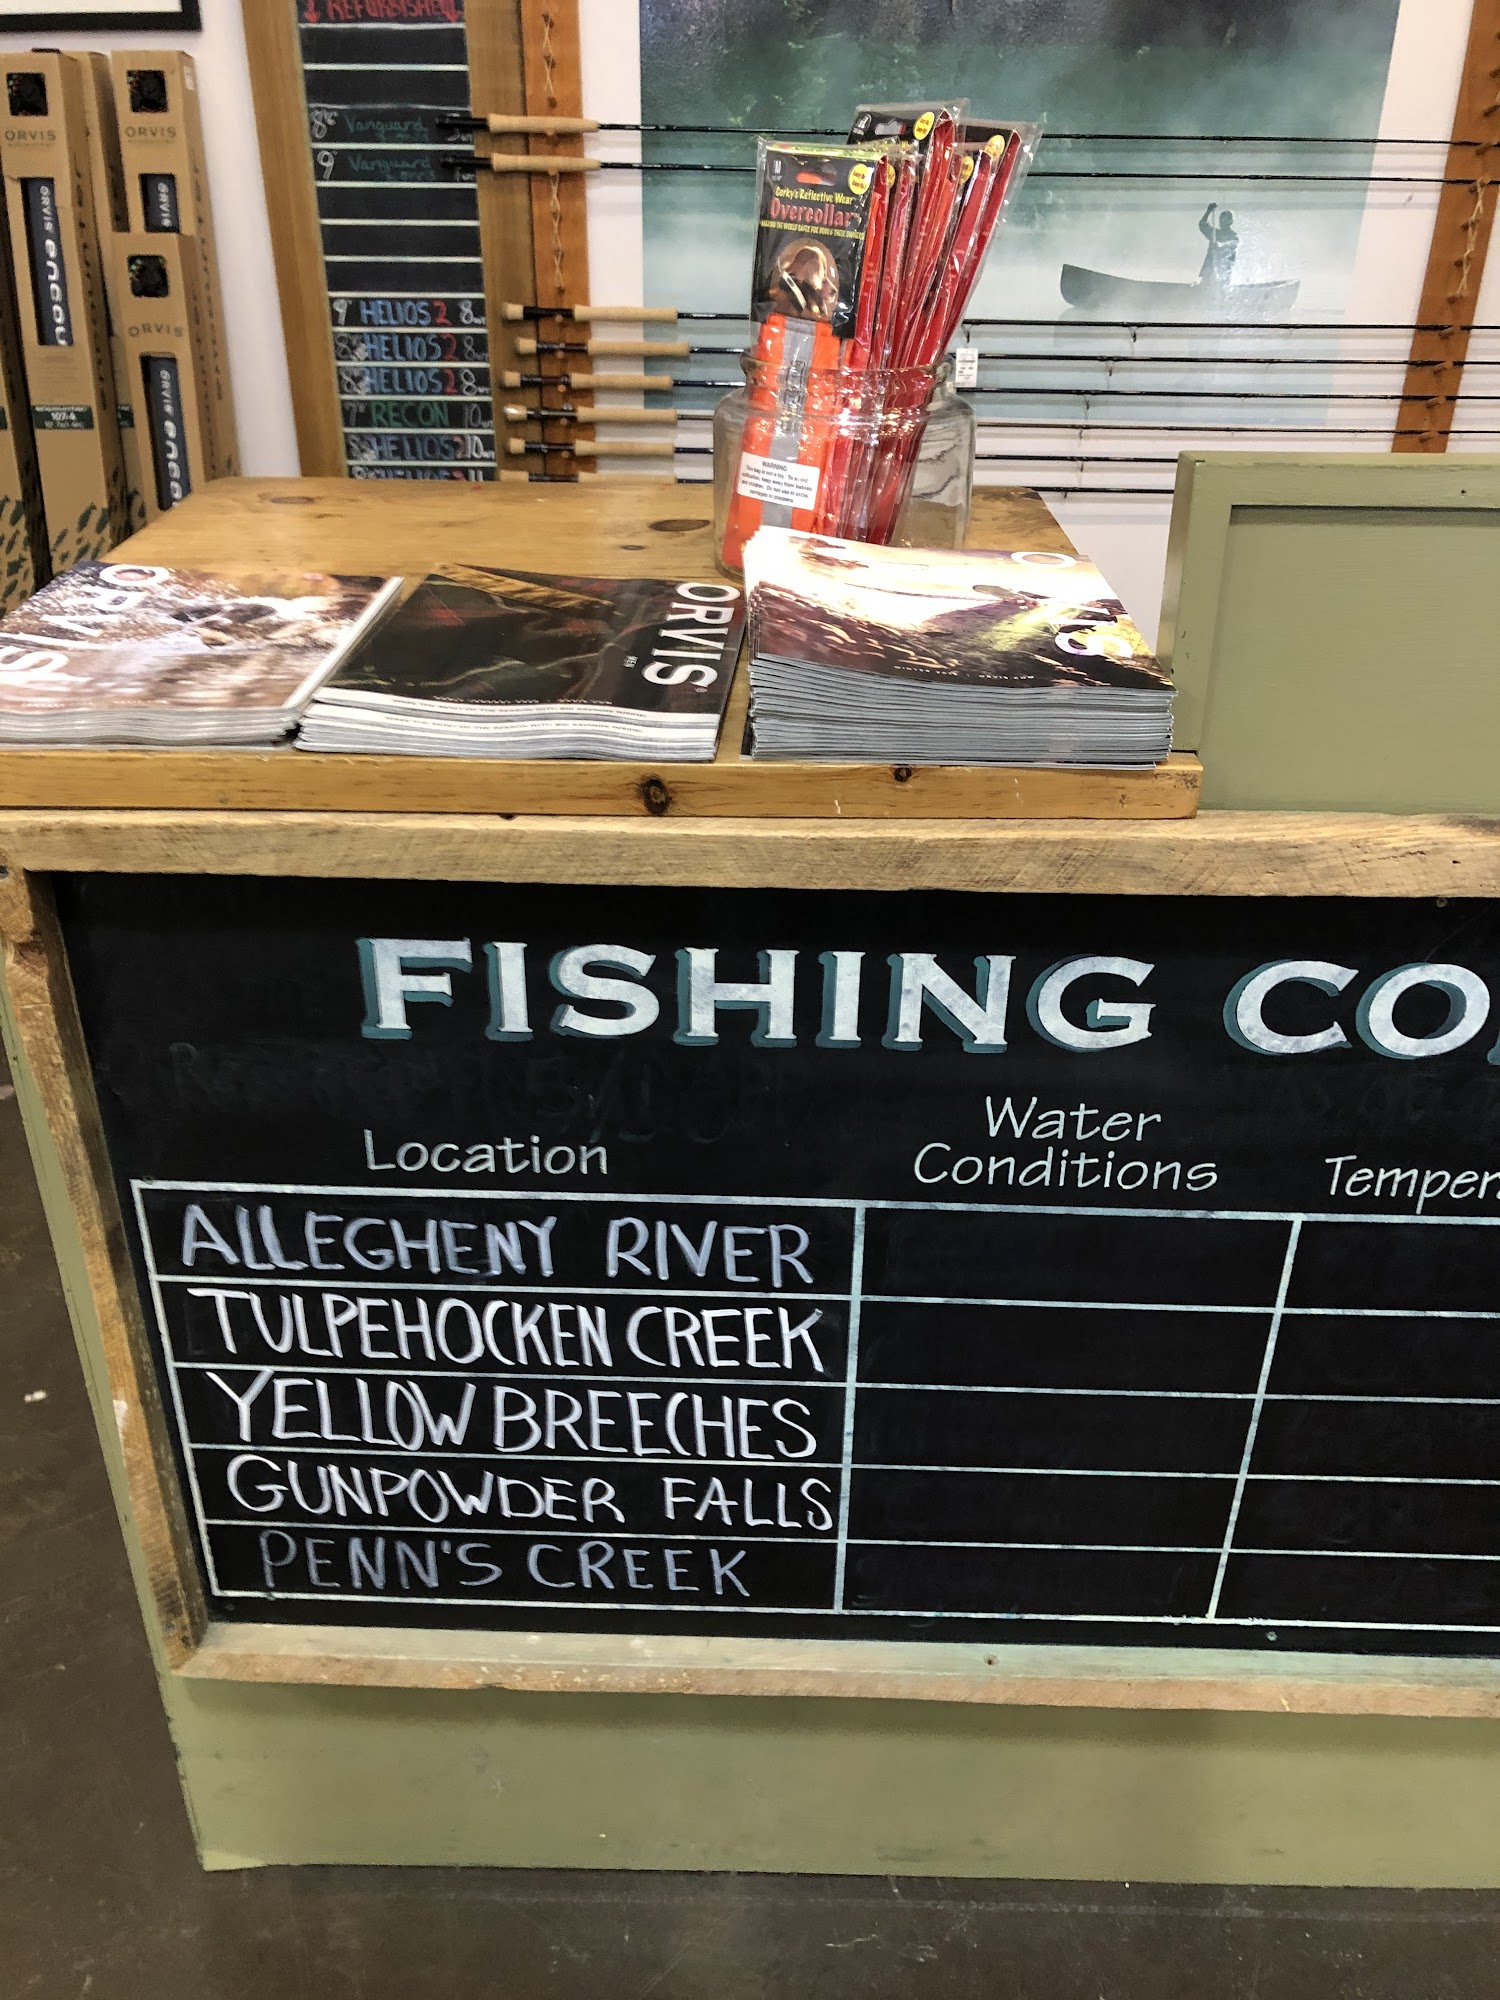 REFURBISHED
8'6" Vanguard
9' Vanguard
9' HELIOS 2 8wt
HELIOS 2 8wt
HELIOS 2 8wt
7'' RECON 10wt
HELIOS 2 10wt
ORVIS
ORVIS
ORVIS
ORVIS
ORVIS
ORVIS
107-4
M
Corky's Reflective Wear
Overcollar
WARNING
ORVIS
ORVIS
MEN
ORVIS
FISHING CO
Location
Water
Conditions
Temper
ALLEGHENY RIVER
TULPEHOCKEN CREEK
YELLOW BREECHES
GUNPOWDER FALLS
PENN'S CREEK